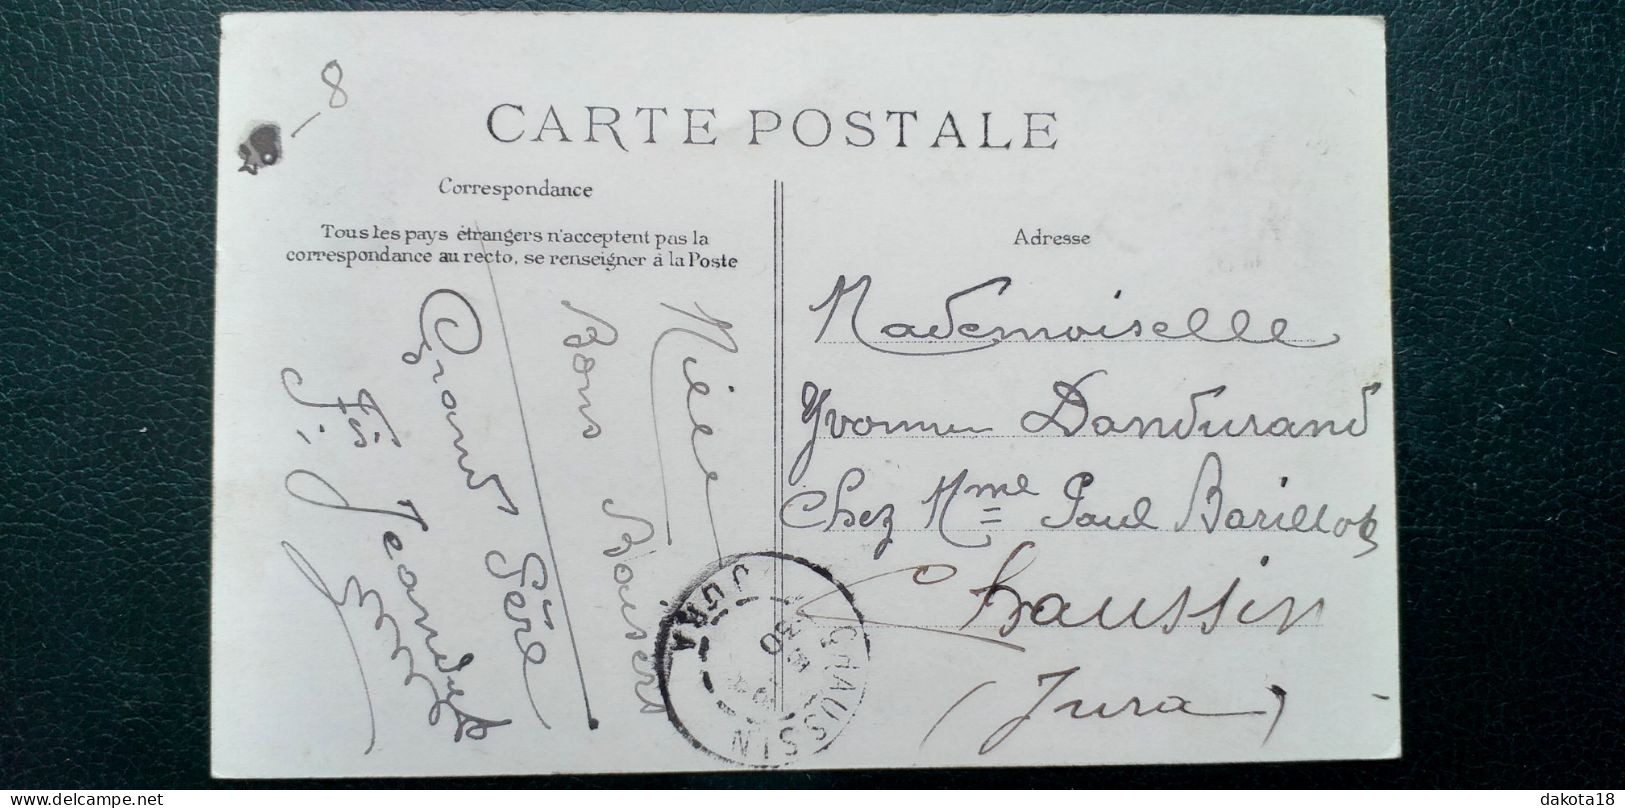 – 8
CARTE POSTALE
Correspondance
Tous les pays étrangers n'acceptent pas la
correspondance au recto, se renseigner à la Poste
Adresse
Mademoiselle
Yvonne Dandurand
Chez Mme Paul Barillot
Chaussin
(Jura)
Bons Baisers
Grand Père
CHAUSSIN
JURA
30
dakota18